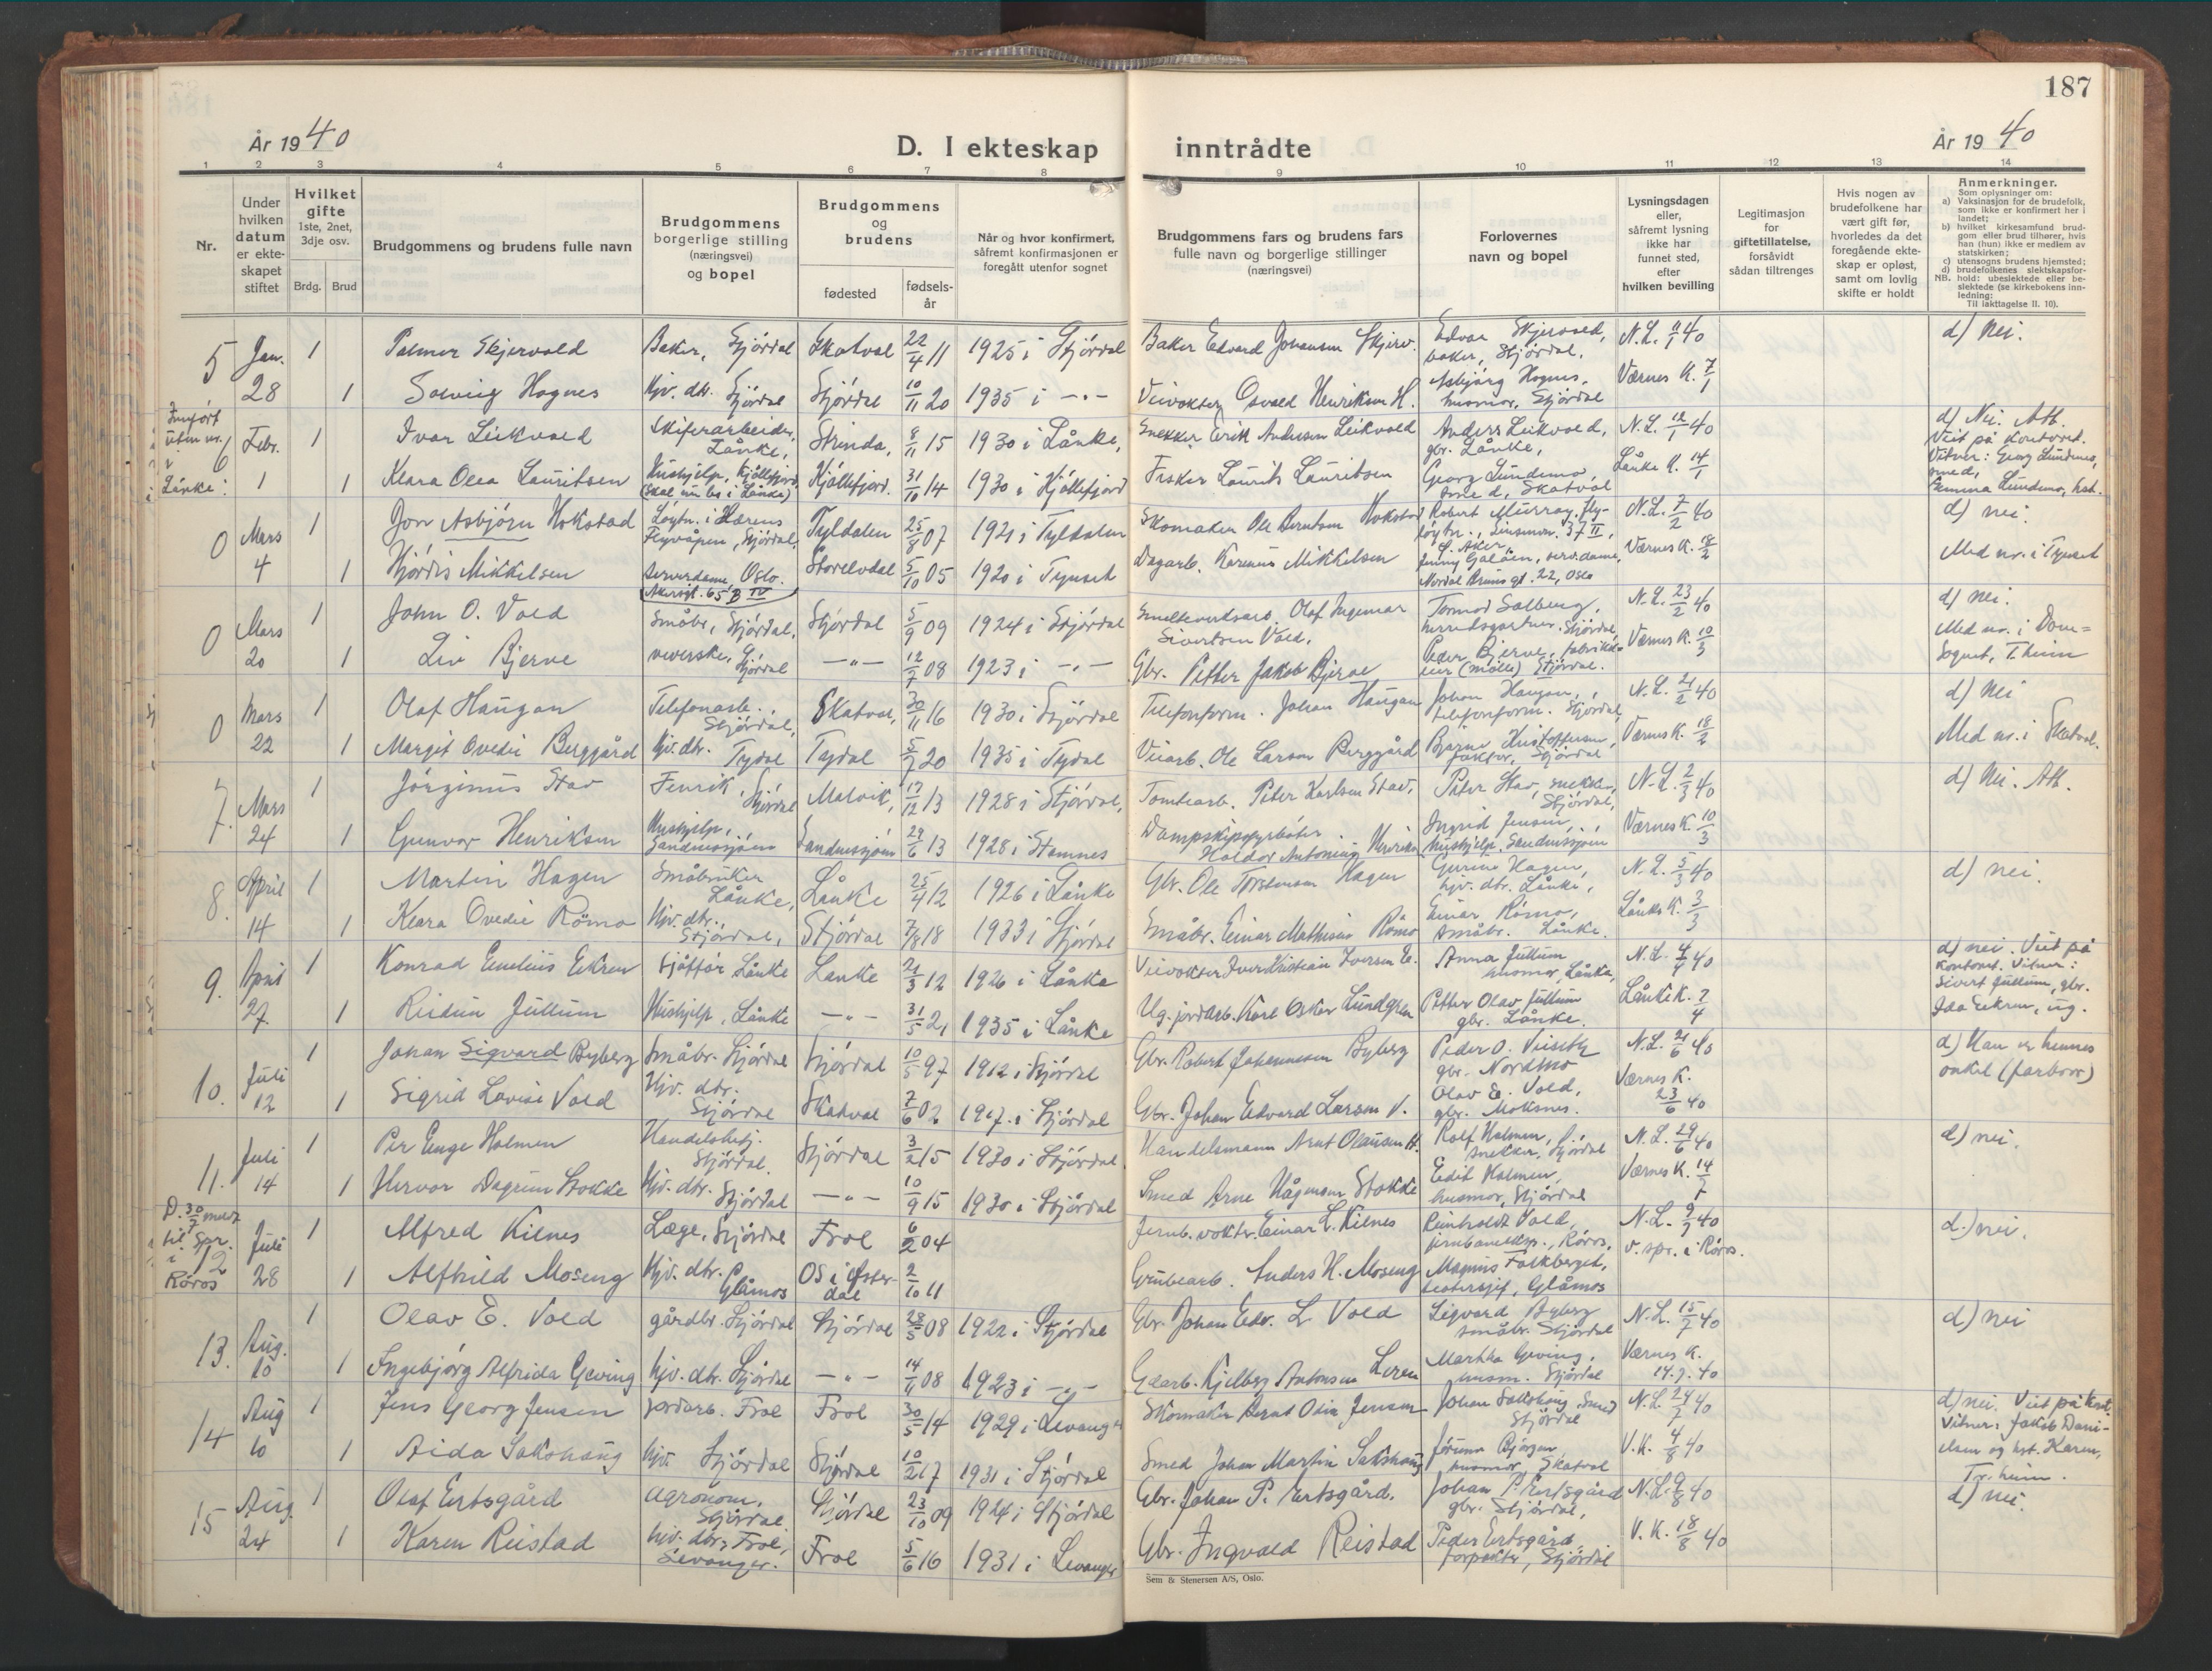 187
År 1940
D. I ekteskap inntrådte
År 1940
1 2 3 4 5 6 7 8 9 10 11 12 13 14
Nr.
Under hvilken datum er ekteskapet stiftet
Hvilket gifte
1ste, 2net, 3dje osv.
Brdg. Brud
Brudgommens og brudens fulle navn
Brudgommens borgerlige stilling (næringsvei) og bopel
Brudgommens og brudens
fødested
fødselsår
Når og hvor konfirmert, såfremt konfirmasjonen er foregått utenfor sognet
Brudgommens fars og brudens fars fulle navn og borgerlige stillinger (næringsvei)
Forlovernes navn og bopel
Lysningsdagen eller, såfremt lysning ikke har funnet sted, efter hvilken bevilling
Legitimasjon for giftetillatelse, forsåvidt sådan tiltrenges
Hvis nogen av brudefolkene har vært gift før, hvorledes da det foregående ekteskap er opløst, samt om lovlig skifte er holdt
Anmerkninger.
Som oplysninger om:
a) Vaksinasjon for de brudefolk, som ikke er konfirmert her i landet;
b) hvilket kirkesamfund brudgom eller brud tilhører, hvis han (hun) ikke er medlem av statskirken;
c) utensogns brudens hjemsted;
d) brudefolkenes slektskapsforhold: ubeslektede eller beslektede (se kirkebokens innledning:
NB. Til iakttagelse II. 10).
5 Jan. 28 1 Palmer Skjervold Baker, Stjórdal Skatval 22/4 11 1925 i Stjórdal Baker Edvard Johansen Skjerv. Edvar Skjervold, baker, Stjórdal, N.L. 11/1 40 d) Nei.
1 Solveig Hognes Hjv. dtr. Stjórdal Stjórdal 10/11 20 1935 i -"- Veivokter Osvald Henriksen H. Asbjørg Hognes, husmor, Stjórdal Værnes K. 7/1
Innført uten nr. i Lånke: 6 Febr. 1 1 Ivar Leikvold Skiferarbeider, Lånke, Strinda, 8/11 15 1930 i Lånke, Snekker Erik Andersen Leikvold Anders Leikvold, gbr. Lånke, N.L. 12/1 40 d) Nei. Att. Viet på kontoret. Vitner: Georg Lundemo, smed,
1 Klara Olea Lauritsen Hushjelp, Kjøllefjord (Skal nu bo i Lånke) Kjøllefjord. 31/10 14 1930 i Kjøllefjord Fisker Laurits Lauritsen Georg Lundemo, smed, Skatval Lånke K. 14/1 Gemma Lundemo, hst.
0 Mars 4 1 Jon Asbjørn Hokstad Løytn. i Hærens Flyvåpen, Stjórdal, Tyldalen 25/8 07 1921 i Tyldalen Skomaker Ole Berntsen Hokstad Robert Murray, flyløytn., 37 II, Ø. Aker N.L. 7/2 40 d) nei.
1 Hjørdis Mikkelsen Serverdame, Oslo. Akersgt. 65 B IV Storelvdal 5/10 05 1920 i Tynset Dagarb. Karenus Mikkelsen Jenny Galåen, serv.dame, Nordal Bruns gt. 22, Oslo Værnes K. 18/2 Med nr. i Tynset
0 Mars 20 1 John O. Vold Småbr., Stjórdal, Stjórdal 5/9 09 1924 i Stjórdal Smelteverksarb. Olaf Ingemar Sivertsen Vold. Tormod Solberg, herredsgartner, Stjórdal, N.L. 23/2 40 d) Nei.
1 Liv Bjerve veverske, Stjórdal -"- 12/7 08 1923 i -"- Gbr. Petter Jakob Bjerve Peder Bjerve, fabrikkeier (mølle) Stjórdal. Værnes K. 10/3 Med nr. i Domsognet, T.heim
0 Mars 22 1 Olaf Haugan Telefonarb., Stjórdal, Skatval, 30/11 16 1930 i Stjórdal Telefonform. Johan Haugan Johan Haugan, telefonform. Stjórdal, N.L. 21/2 40 d) Nei
1 Margit Ovedie Berggård Hjv. dtr. Tydal Tydal 5/7 20 1935 i Tydal Veiarb. Ole Larsen Berggård Bjarne Kristoffersen, faktor, Stjórdal Værnes K. 18/2 Med nr. i Skatval.
7. Mars 24 1 Jørginus Stav Fenrik, Stjórdal Malvik, 17/12 13 1928 i Stjórdal, Tomtearb. Peter Karlsen Stav, Peter Stav, snekker, Stjórdal, N.L. 2/3 40 d) Nei. Att.
1 Gunvor Henriksen Hushjelp, Sandnessjøen Sandnessjøen 29/6 13 1928 i Stamnes Dampskipsfyrbøter Haldor Antoning Henriksen Ingrid Jensen, hushjelp, Sandnessjøen Værnes K. 10/3
8. April 14 1 Martin Hagen Småbruker Lånke, Lånke 25/4 12 1926 i Lånke Gbr. Ole Torstensen Hagen Gurine Hagen, hjv. dtr. Lånke, N.L. 5/3 40 d) nei.
1 Klara Ovedie Römo Hjv. dtr., Stjórdal, Stjórdal 7/8 18 1933 i Stjórdal Småbr. Einar Mathisen Römo Einar Römo, småbr. Lånke. Lånke K. 3/3
9. April 27 1 Konrad Emelius Ekren Sjåffør Lånke Lånke 21/3 12 1926 i Lånke Veivokter Iver Kristian Iversen E. Anna Jullum husmor, Lånke, N.L. 4/4 40 d) nei. Viet på kontoret. Vitner: Sivert Jullum, gbr.
1 Reidun Jullum Hushjelp, Lånke -"- 31/5 21 1935 i Lånke Ug. jordarb. Karl Oskar Lundgren Petter Olav Jullum gbr. Lånke. Lånke K. 7/4 Ida Ekren, ug.
10. Juli 12 1 Johan Sigvard Byberg Småbr. Stjórdal Stjórdal 10/5 97 1912 i Stjórdal Gbr. Robert Johannesen Byberg Peder O. Viseth gbr. Nordmo N.L. 21/6 40 d) Han er hennes onkel (farbror)
1 Sigrid Lovise Vold Hjv. dtr. Stjórdal Skatval 7/6 02 1917. i Stjórdal Gbr. Johan Edvard Larsen V. Olav E. Vold, gbr. Moksnes. Værnes K. 23/6 40
11. Juli 14 1 Per Enge Holmen Handelsbetj. Stjórdal. Stjórdal 3/2 15 1930 i Stjórdal Handelsmann Arnt Olausen H. Rolf Holmen, snekker, Stjórdal N.L. 29/6 40 d) nei.
1 Hervor Dagrun Stokke Hjv. dtr. Stjórdal -"- 10/9 15 1930 i Stjórdal Smed Arne Hågensen Stokke Edit Holmen, husmor, Stjórdal Værnes K. 14/7
D. 30/7 meldt til Spr. i Røros 12 Juli 28 1 Alfred Kilnes Læge, Stjórdal Frol 6/2 04 Jernb. vokter. Einar L. Kilnes Reinholdt Vold, jernbaneeksp., Røros, N.L. 9/7 40 d.) nei.
1 Alfhild Moseng Hjv. dtr. Glåmos Os i Østerdal 2/10 11 Grubearb. Anders H. Moseng Magnus Falkberget, Glåmos v. spr. i Røros.
13. Aug. 10 1 Olav E. Vold gårdbr. Stjórdal Stjórdal 28/5 08 1922 i Stjórdal Gbr. Johan Edv. L. Vold Sigvard Byberg småbr. Stjórdal N.L. 15/7 40 d) nei
1 Ingebjørg Alfrida Geving hjv. dtr. Stjórdal -"- 14/11 08 1923 i -"- Gdarb. Kjelberg Antonsen Leren Martha Geving, husm. Stjórdal Værnes K. 14.7.40
14 Aug 10 1 Jens Georg Jensen jordarb. Frol Frol 30/5 14 1929 i Levanger Skomaker Bernt Odin Jensen Johan Sakshaug Smed Stjórdal N.L. 24/7 40 d) nei. Viet på kont. Vitner: Jakob Danielsen og hst. Karen, Tr.heim.
1 Aida Sakshaug hjv Stjórdal Stjórdal 10/2 17 1931 i Stjórdal Smed Johan Martin Sakshaug Jørunn Bjørgen husmor, Skatval V.K. 4/8 40
15 Aug. 24 1 Olaf Ertsgård Agronom, Stjórdal Stjórdal 23/10 09 1924 i Stjórdal Gbr. Johan P. Ertsgård. Johan P. Ertsgård gbr. Stjórdal, N.L. 9/8 40 d) nei.
1 Karen Reistad hjv. dtr, Frol, Levanger. Frol 5/6 16 1931 i Levanger Gbr. Ingvald Reistad Peder Ertsgård, forpakter, Stjórdal V.K. 18/8 40
Sem & Stenersen A/S, Oslo.